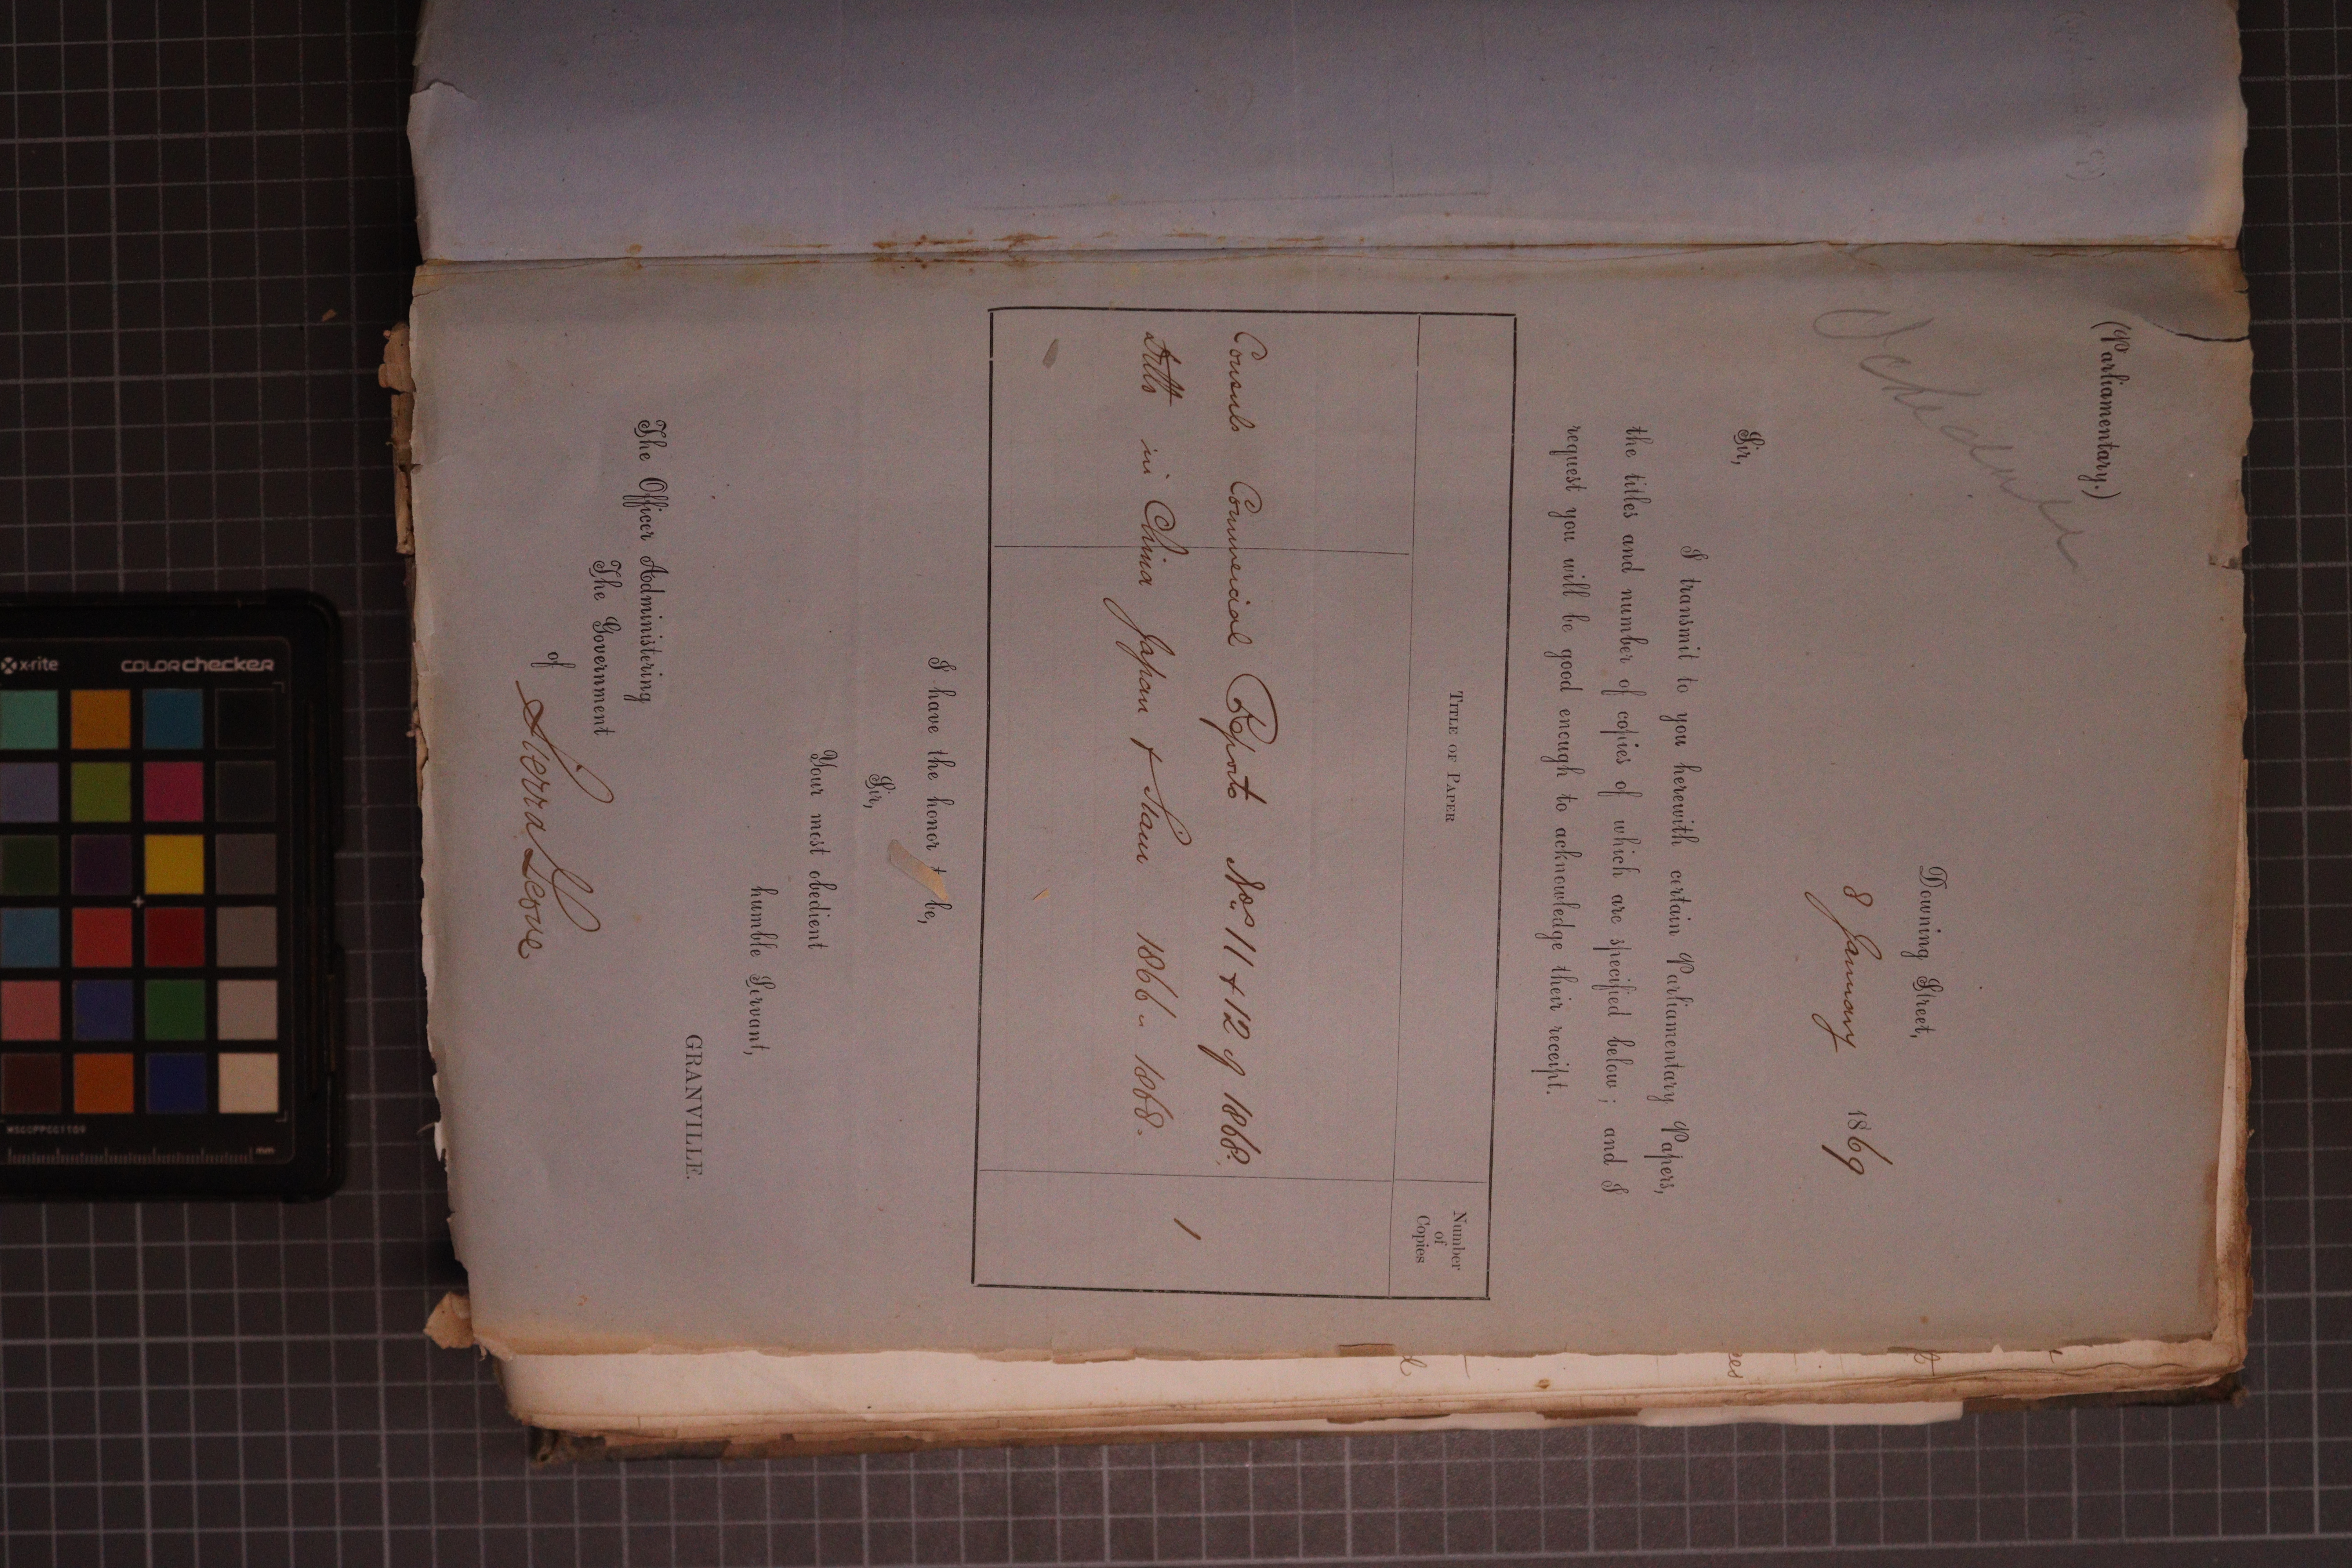 (Parliamentary.)
Schedule
Downing Street,
8 January 1869
Sir,
I transmit to you herewith certain Parliamentary Papers,
the titles and number of copies of which are specified below; and I
request you will be good enough to acknowledge their receipt.
TITLE OF PAPER
Number
of
Copies
Consuls Commercial Reports Nos 11 & 12 of 1868.
Ditto in China Japan & Siam 1866 - 1868.
1
I have the honor t be,
Sir,
Your most obedient
humble Servant,
GRANVILLE.
The Officer Administering
The Government
of
Sierra Leone
x-rite
colorchecker
MSCCPPCC1109
mm